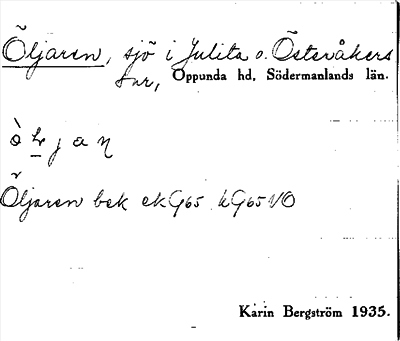 Öljaren, sjö i Julita o. Österåkers
snr, Oppunda hd, Södermanlands län.
Öljaren bek ek G65 hG65VO
Karin Bergström 1935.